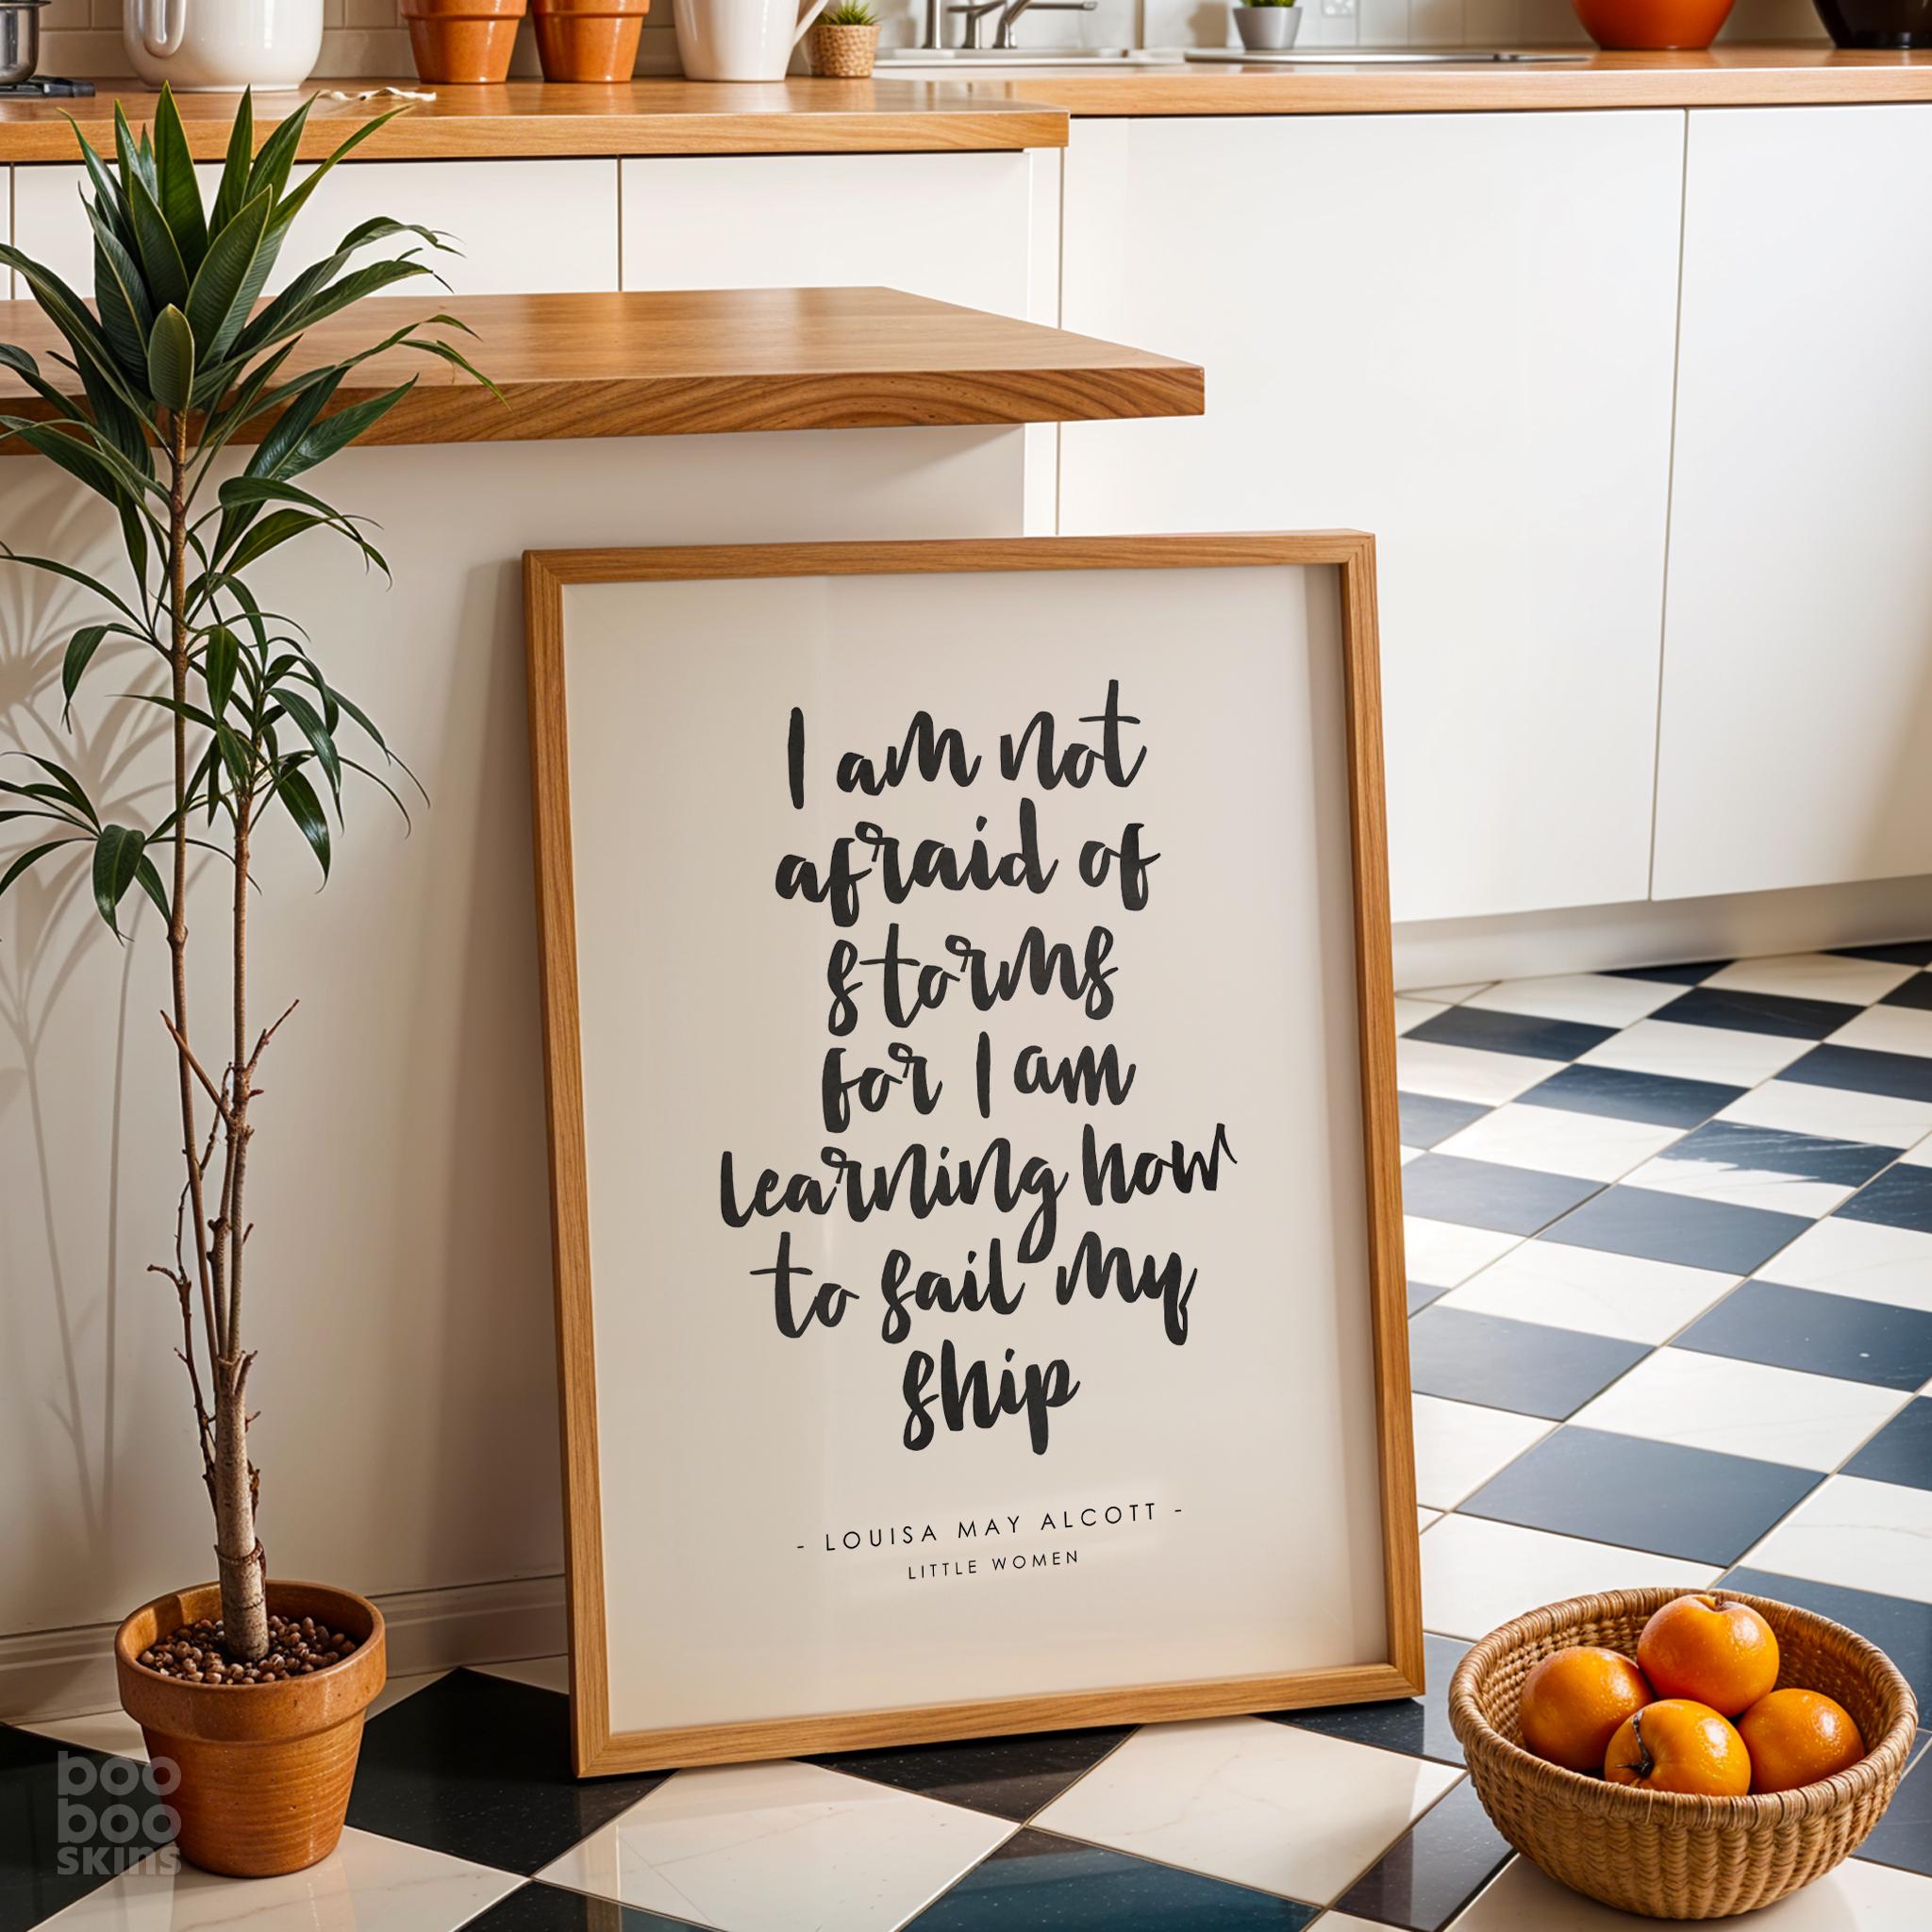 I am not
afraid of
storms
for I am
learning how
to sail my
ship
- LOUISA MAY ALCOTT -
LITTLE WOMEN
boo
boo
skins